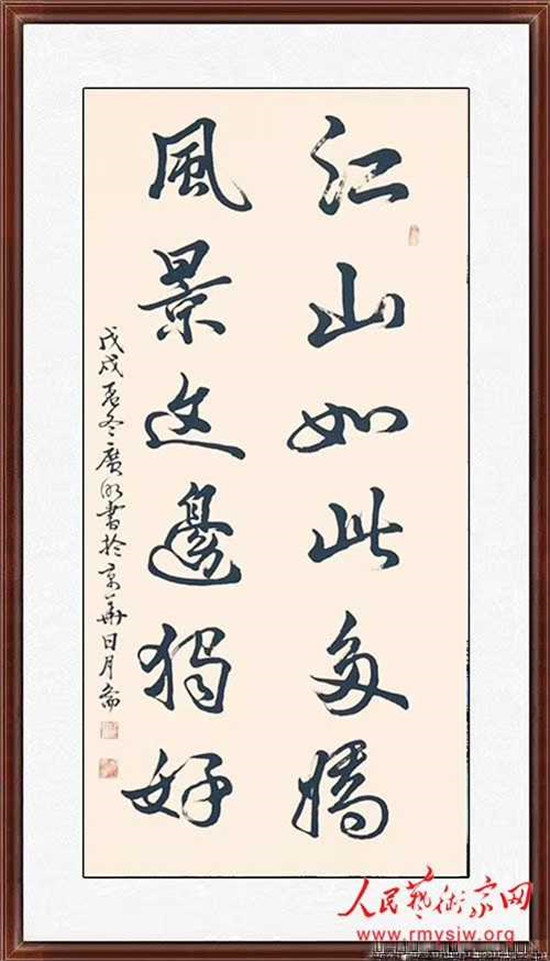 江山如此多嬌
風景这邊獨好
戊戌孟冬廣明書於京華日月斋
人民藝術家网
www.rmysjw.org